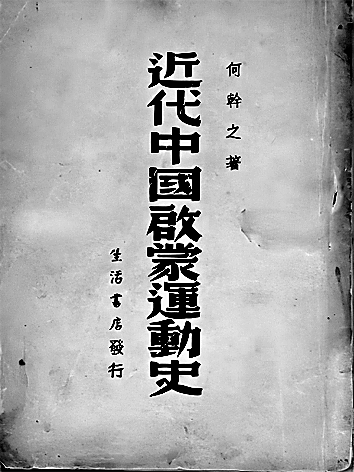 何幹之著
近代中國啟蒙運動史
生活書店發行